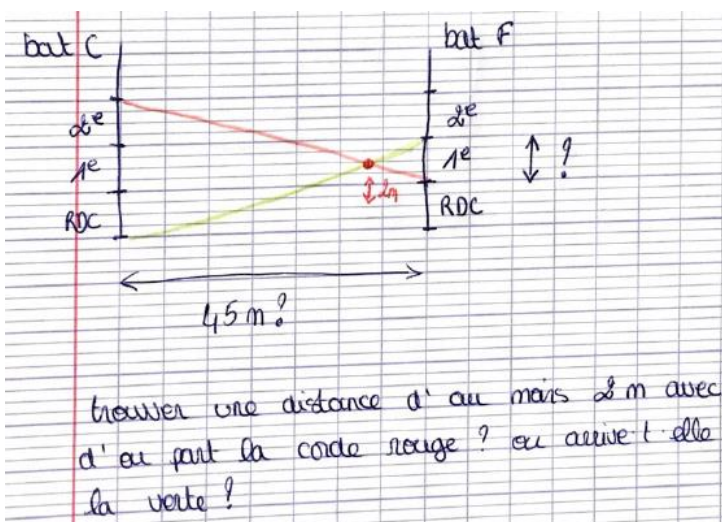 bat C
bat F
2e
2e
1e
1e
?
2m
RDC
RDC
45m?
trouver une distance d'au mois 2 m avec
d'ou part la corde rouge ? ou arrive-t-elle
la verte ?